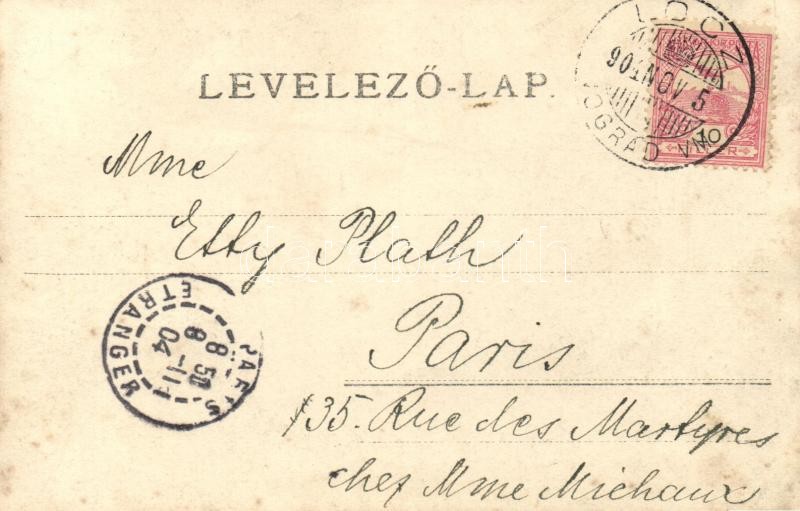 LEVELEZŐ-LAP.
LOCZ
904 NOV 5
NÓGRÁD VM
10
Mme
Etty Plath
Paris
135. Rue des Martyres
chez Mme Michaux
PARIS
8 50
8 -11
04
ETRANGER